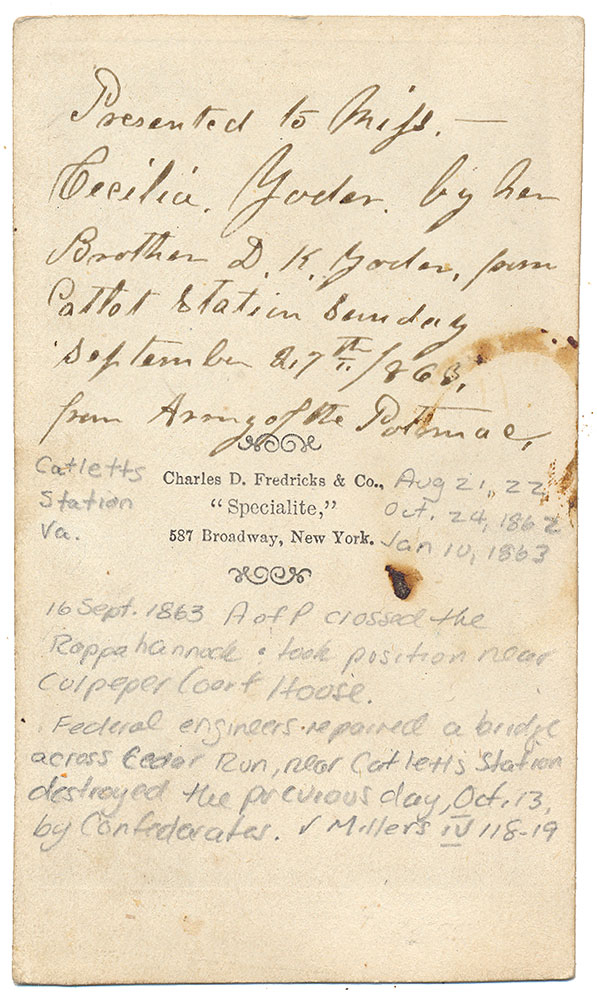 Presented to Miss. —
Cecilia. Yoder. by her
Brother D. K. Yoder, from
Catlot Station Sunday
September 27th /1863,
from Army of the Potomac,
Catletts
Station
Va.
Charles D. Fredricks & Co.,
"Specialite,"
587 Broadway, New York.
Aug 21, 22
Oct. 24, 1862
Jan 10, 1863
16 Sept. 1863 A of P crossed the
Rappahannock & took position near
Culpeper Court House.
Federal engineers repaired a bridge
across Cedar Run, near Catletts Station
destroyed the previous day, Oct. 13,
by Confederates. √ Millers IV 118-19